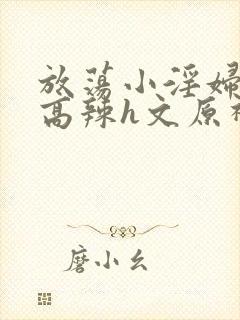 放荡小淫婦
高辣h文原
磨小幺